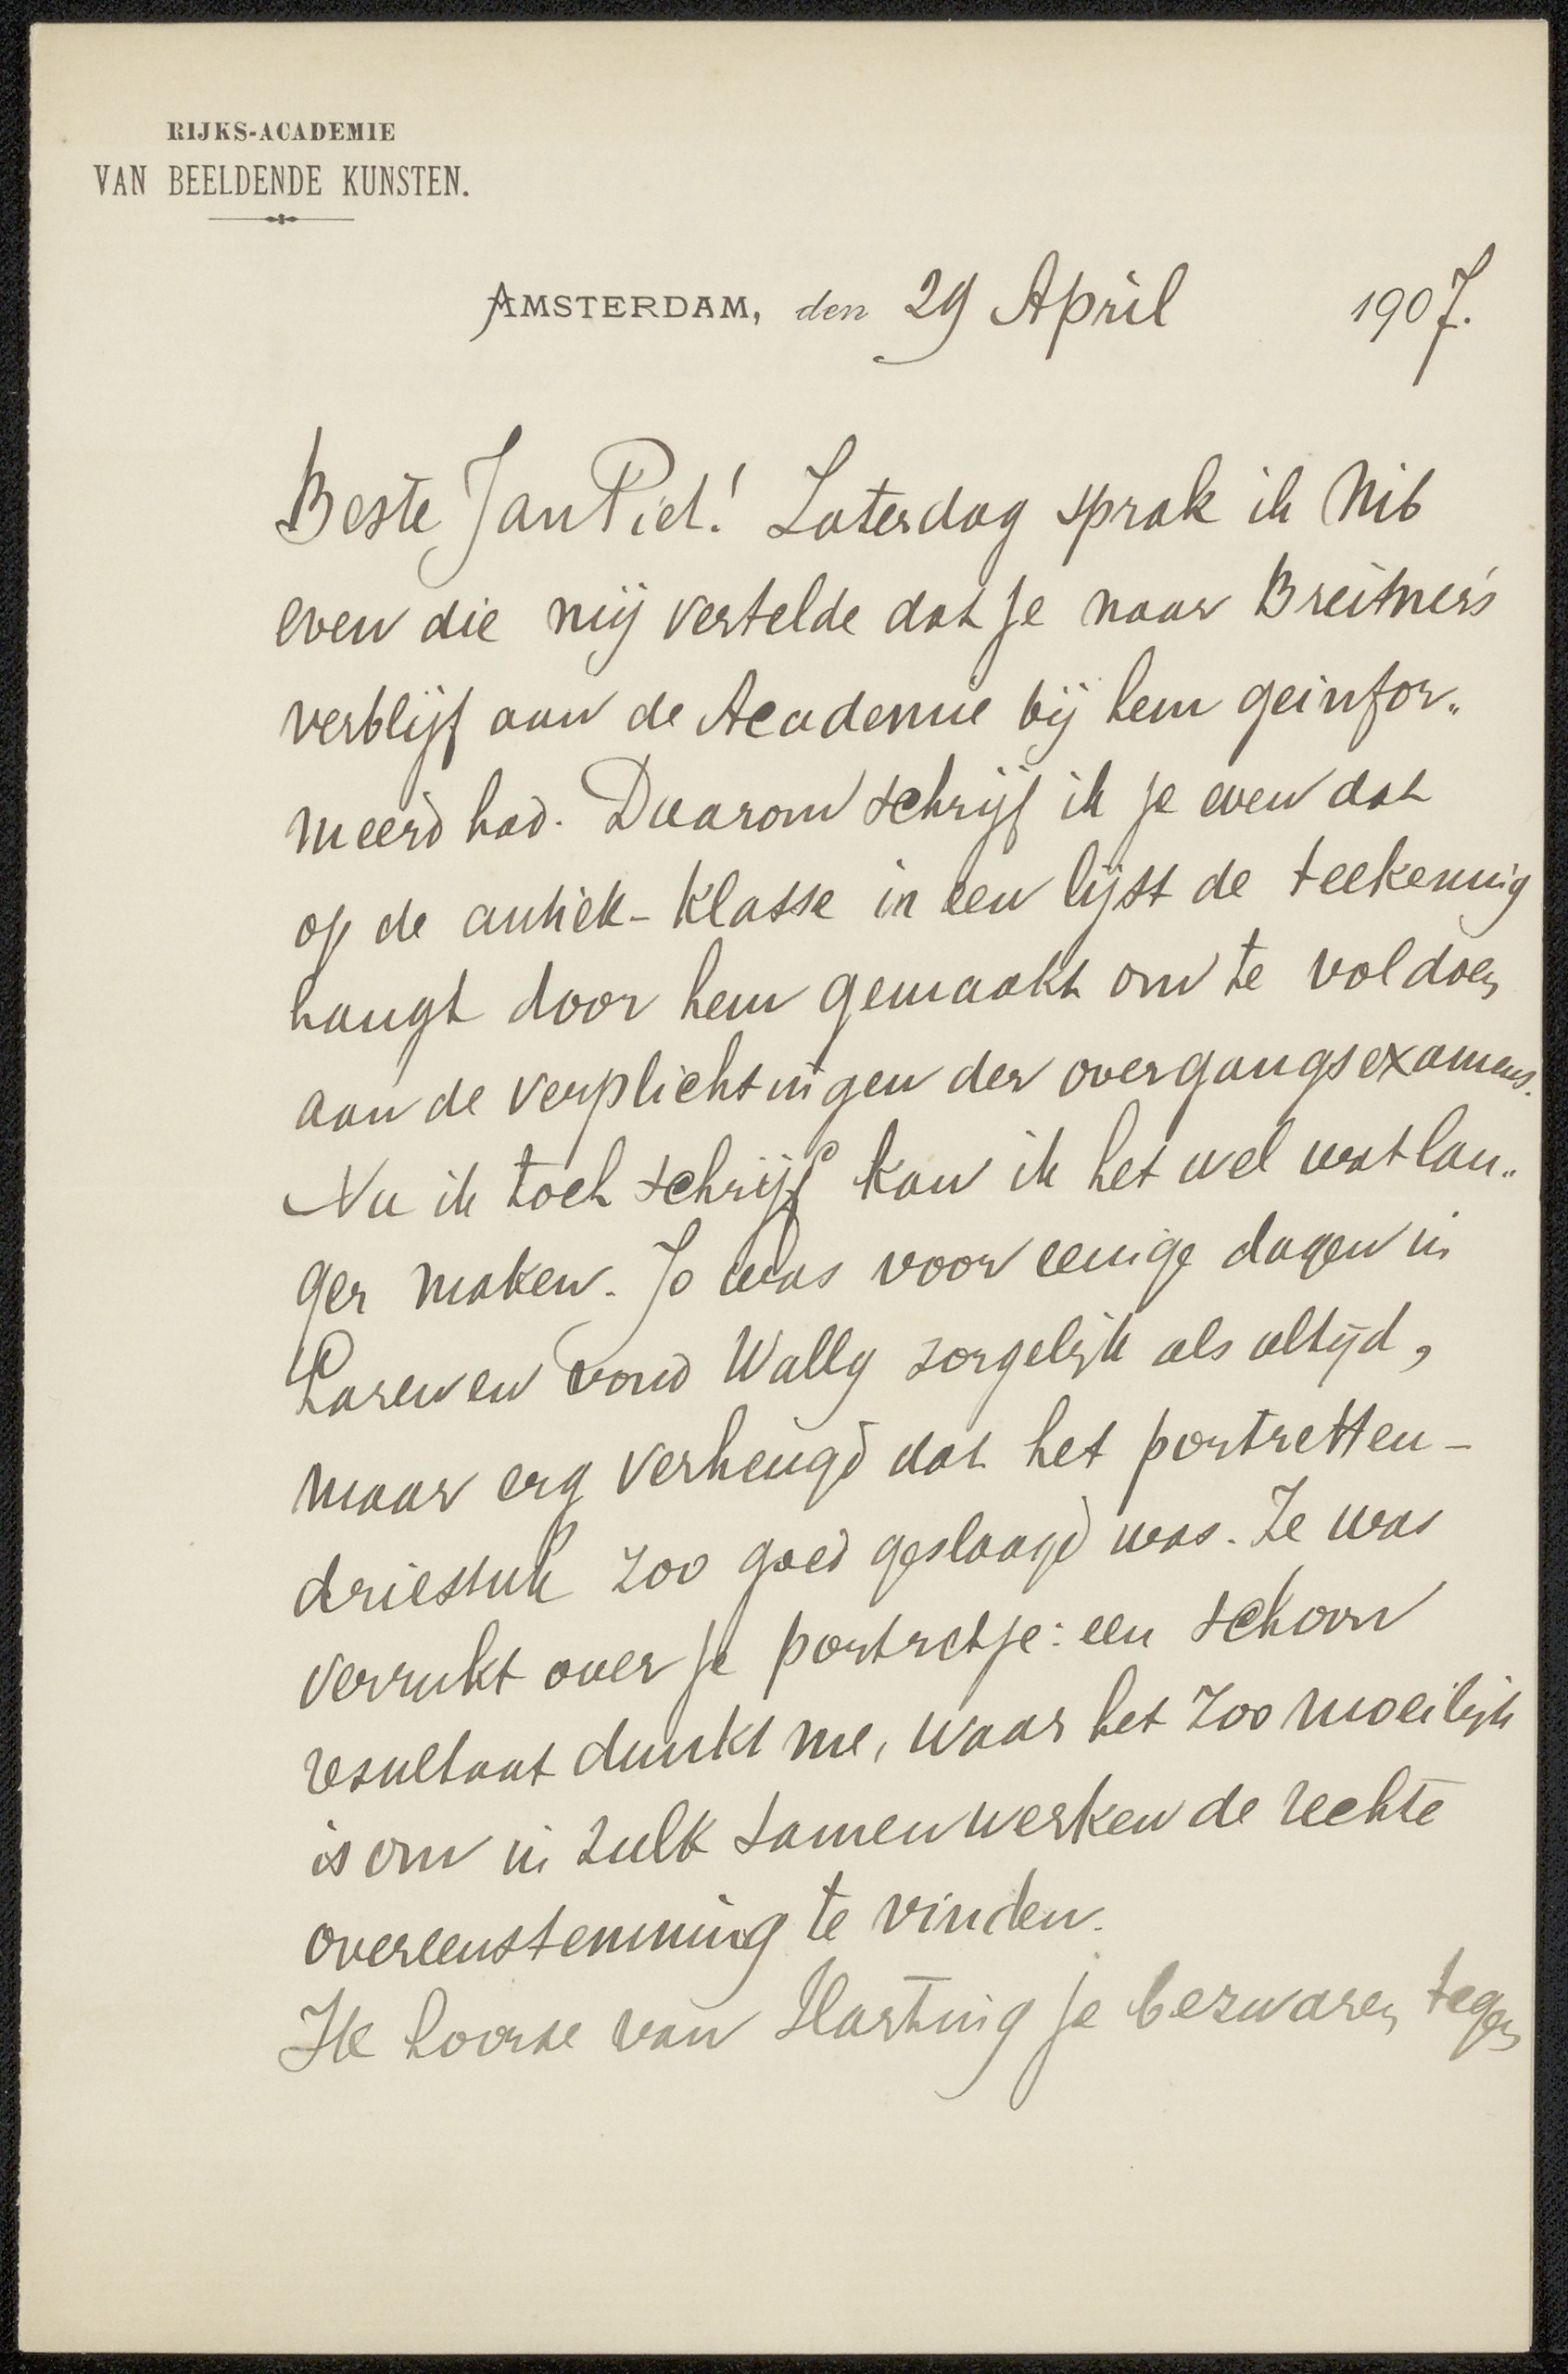 RIJKS-ACADEMIE
VAN BEELDENDE KUNSTEN.
AMSTERDAM, den 29 April 1907.
Beste Jan Piet! Zaterdag sprak ik Nib
even die mij vertelde dat je naar Breitner's
verblijf aan de Academie bij hem geinfor„
meerd had. Daarom schrijf ik je even dat
op de antiek-klasse in een lijst de teekening
hangt door hem gemaakt om te voldoen
aan de verplichtingen der overgangsexamens.
Nu ik toch schrijf kan ik het wel wat lan„
ger maken. Jo was voor eenige dagen in
Laren en vond Wally zorgelijk als altijd,
maar erg verheugd dat het portretten-
driestuk zoo goed geslaagd was. Ze was
verrukt over je portretje: een schoon
resultaat dunkt me, waar het zoo moeilijk
is om in zulk samenwerken de rechte
overeenstemming te vinden.
Ik hoorde van Harting je bezwaren tegen